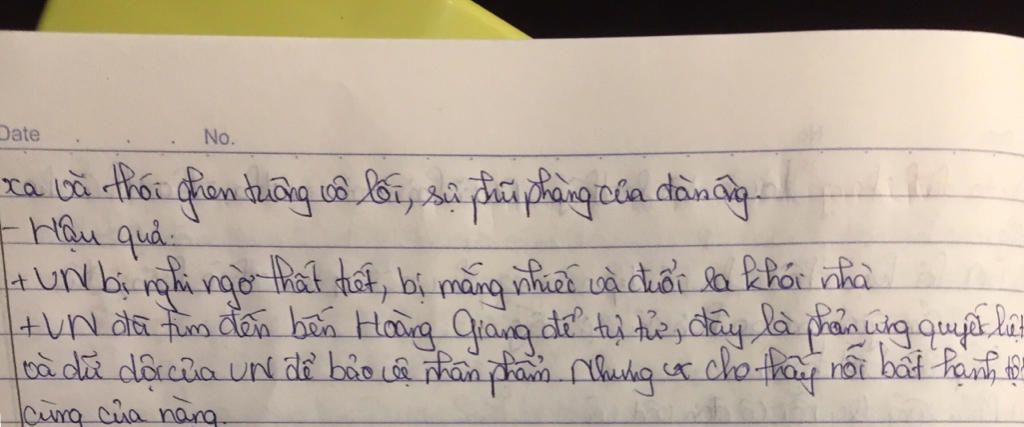 Date . . . . No.
xa và thói ghen tuông vô lối, sự phũ phàng của đàn ông.
- Hậu quả:
+ VN bị nghi ngờ thất tiết, bị mắng nhiếc và đuổi ra khỏi nhà
+ VN đã tìm đến bến Hoàng Giang để tự tử, đây là phản ứng quyết liệt
và dữ dội của VN để bảo vệ nhân phẩm. Nhưng cho thấy nỗi bất hạnh tột
cùng của nàng.